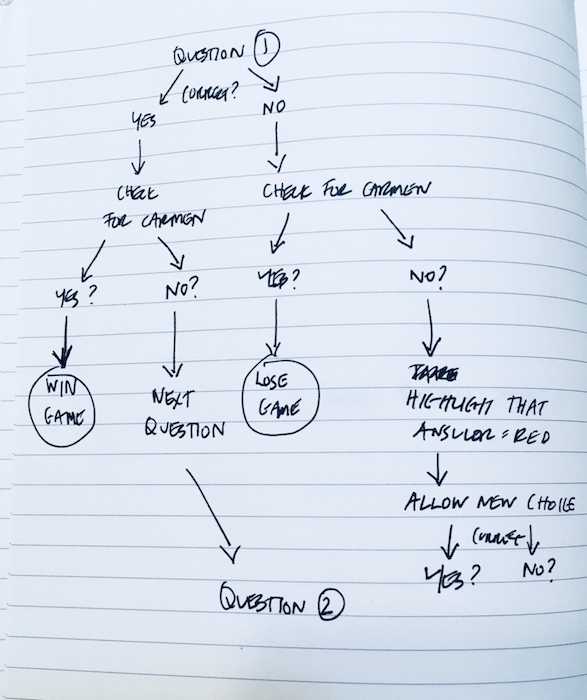 QUESTION 1
CORRECT?
YES
NO
CHECK
FOR CARMEN
CHECK FOR CARMEN
YES?
NO?
YES?
NO?
WIN
GAME
NEXT
QUESTION
LOSE
GAME
HIGHLIGHT THAT
ANSWER = RED
ALLOW NEW CHOICE
CORRECT
YES?
NO?
QUESTION 2